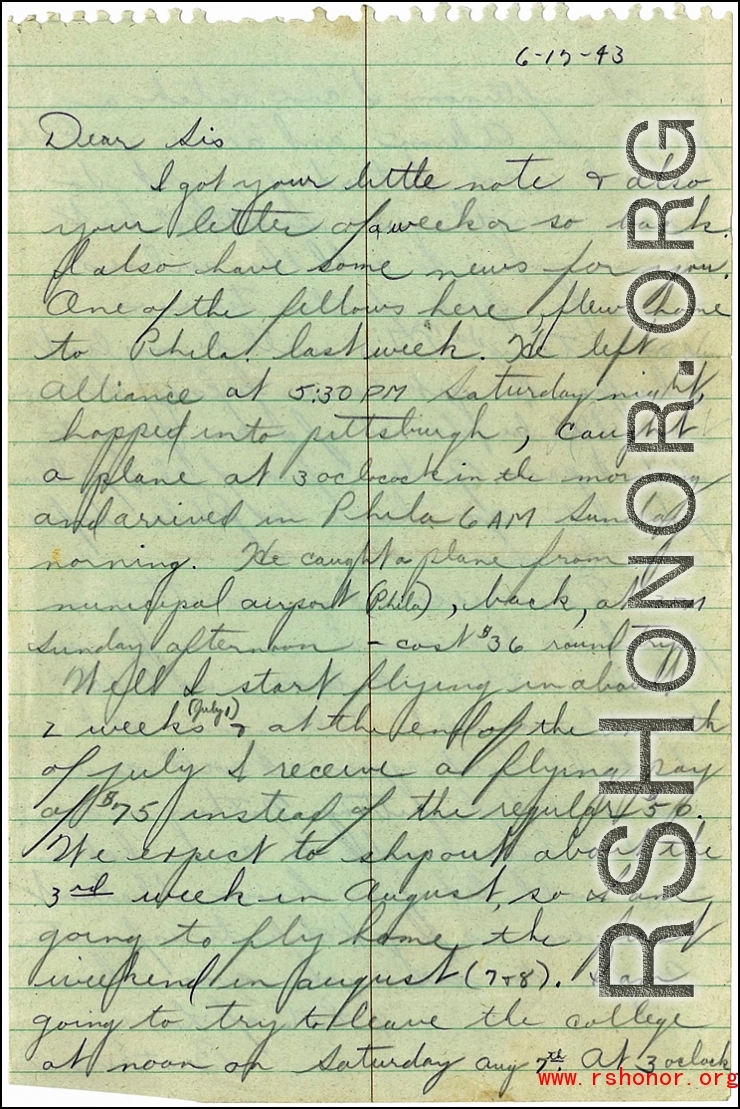 6-17-43
Dear Sis
I got your little note & also
your letter of a week or so back.
I also have some news for you.
One of the fellows here flew home
to Phila. last week. He left
Alliance at 5:30 PM Saturday night,
hopped into pittsburgh, caught
a plane at 3 oclocock in the morning
and arrived in Phila 6 AM Sunday
morning. He caught a plane from
municipal airport (Phila), back, at
Sunday afternoon - cost $36 round trip
Well I start flying in about
2 weeks (July 1) & at the end of the month
of july I receive a flying pay
of $75 instead of the regular $50.
We expect to shipout about the
3rd week in August, so I am
going to fly home the first
weekend in august (7&8). I am
going to try to leave the college
at noon on Saturday aug 7th. At 3 oclock
RSHONOR.ORG
www.rshonor.org